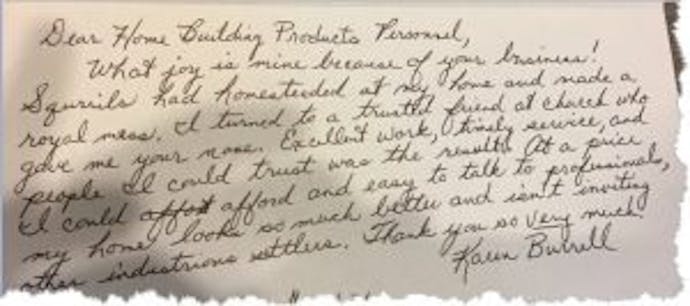 Dear Home Building Products Personnel,
What joy is mine because of your business!
Squirrils had homesteaded at my home and made a
royal mess. I turned to a trusted friend at church who
gave me your name. Excellent work, timely service, and
people I could trust was the result. At a price
I could affort afford and easy to talk to professionals,
my home looks so much better and isn't inviting
other industrious settlers. Thank you so very much!
Karen Burrell